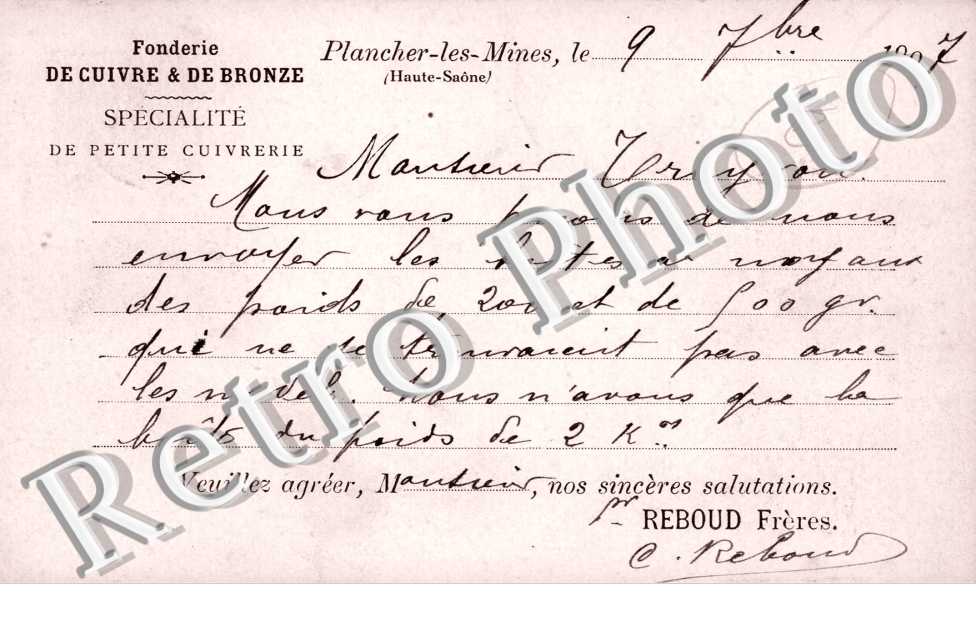 Fonderie
DE CUIVRE & DE BRONZE
SPÉCIALITÉ
DE PETITE CUIVRERIE
Plancher-les-Mines, le 9 7bre 1907
(Haute-Saône)
Monsieur
Nous vous prions de nous
envoyer les boîtes à noyaux
des poids de 200 et de 500 gr.
qui ne se trouvaient pas avec
les model. Nous n'avons que la
boîte du poids de 2 Kos
Veuillez agréer, Monsieur, nos sincères salutations.
pr REBOUD Frères.
C. Reboud
Retro Photo